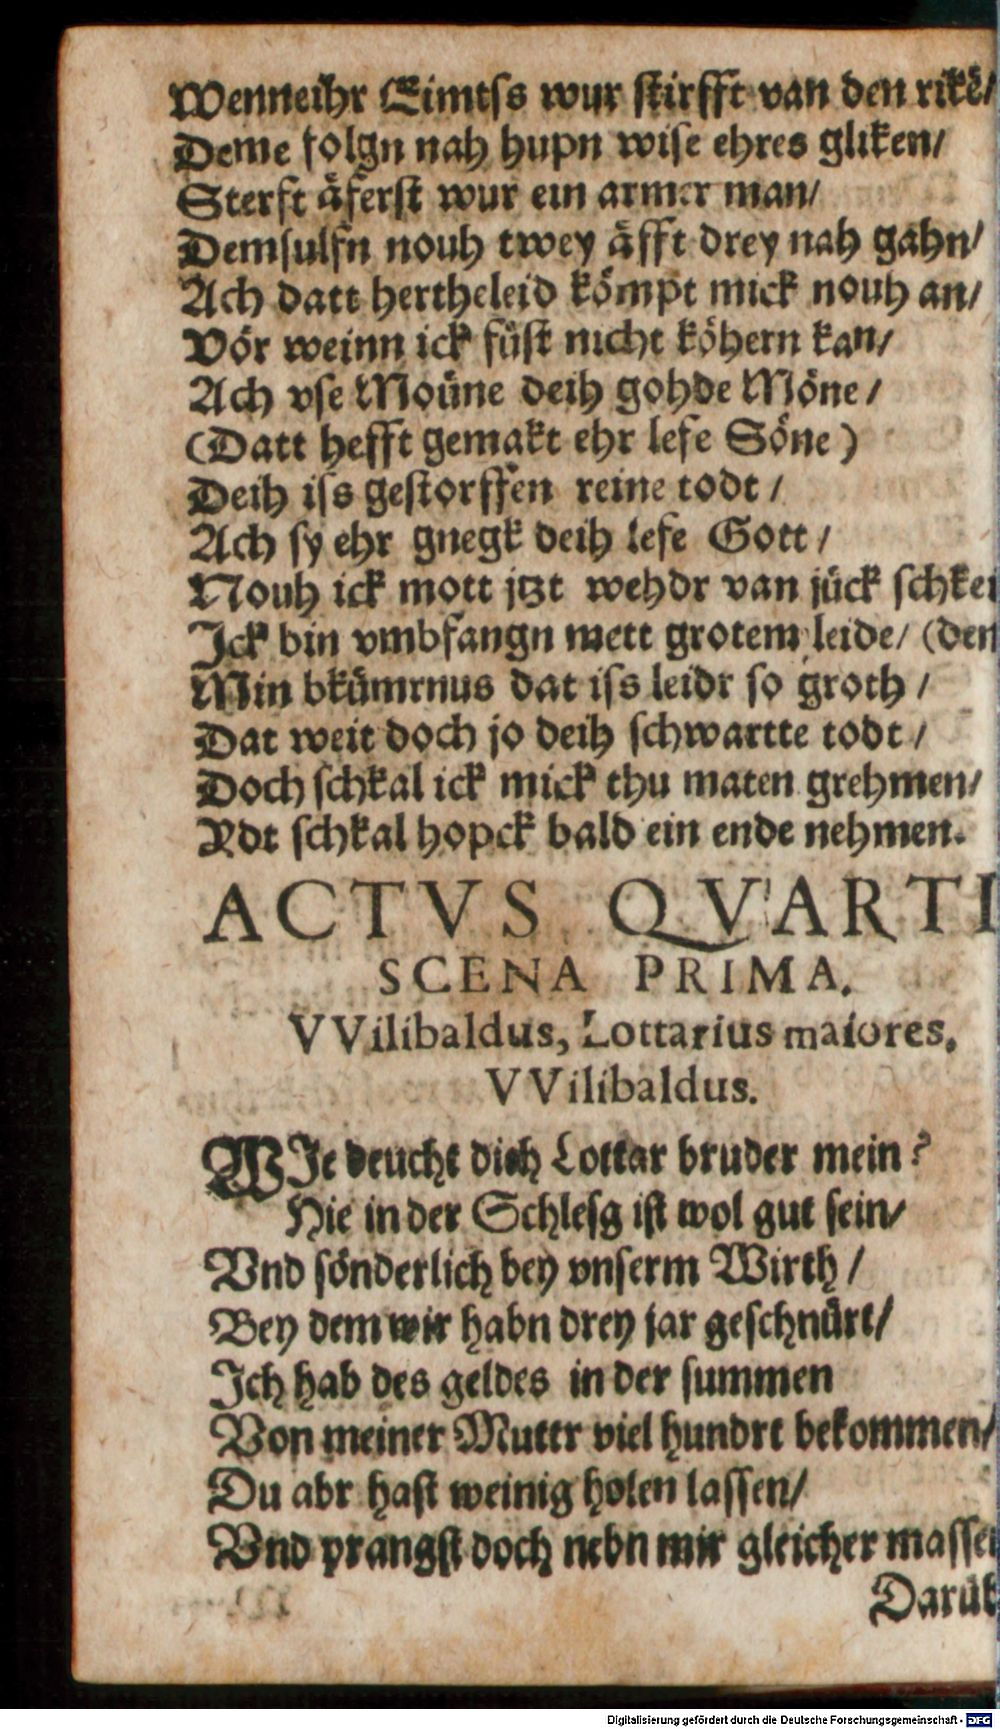 Wenneihr Eimtss wur stirfft van den rikē/
Deme folgn nah hupn wise ehres gliken/
Sterft äferst wur ein armer man/
Demsulfn nouh twey äfft drey nah gahn/
Ach datt hertheleid kömpt mick nouh an/
Vör weinn ick füst nicht köhern kan/
Ach vse Moüne deih gohde Möne/
(Datt hefft gemakt ehr lefe Söne)
Deih iss gestorffen reine todt/
Ach sy ehr gnegk deih lefe Gott/
Nouh ick mott jtzt wehdr van jück schkei
Ick bin vmbfangn mett grotem leide/ (den
Min bkümrnus dat iss leidr so groth/
Dat weit doch jo deih schwartte todt/
Doch schkal ick mick thu maten grehmen/
Rdt schkal hopck bald ein ende nehmen.
ACTVS QVARTI
SCENA PRIMA.
VVilibaldus, Lottarius maiores.
VVilibaldus.
WJe deucht dich Lottar bruder mein?
Hie in der Schlesg ist wol gut sein/
Vnd sönderlich bey vnserm Wirth/
Bey dem wir habn drey jar geschnürt/
Ich hab des geldes in der summen
Von meiner Muttr viel hundrt bekommen/
Du abr hast weinig holen lassen/
Vnd prangst doch nebn mir gleicher massen
Darüb
Digitalisierung gefördert durch die Deutsche Forschungsgemeinschaft - DFG